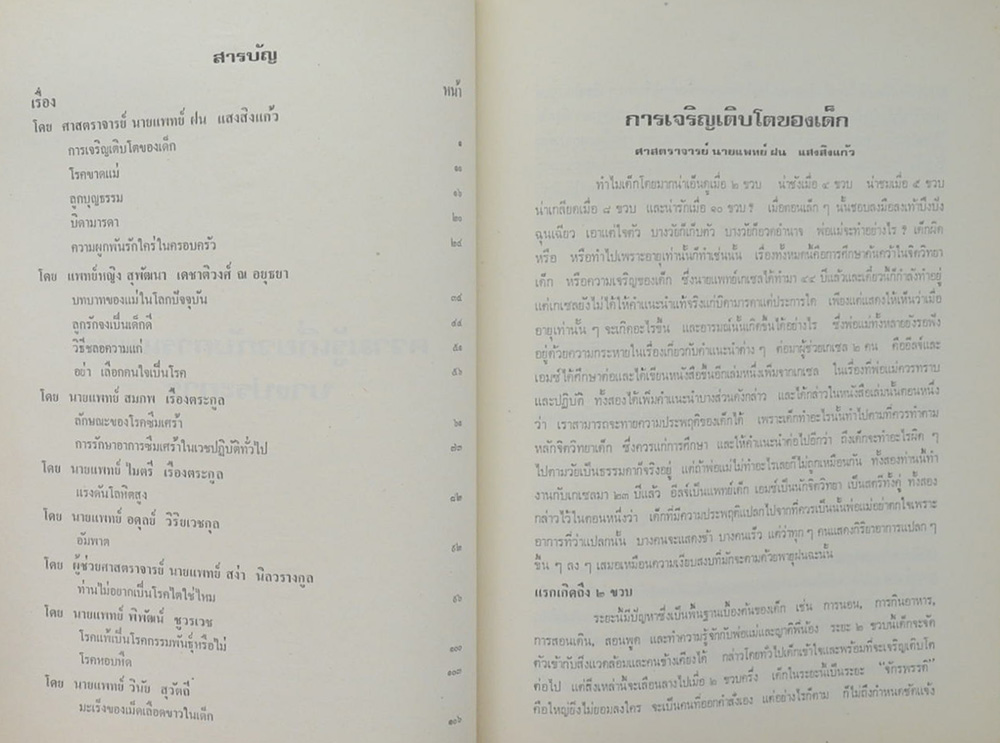 สารบัญ
เรื่อง หน้า
โดย ศาสตราจารย์ นายแพทย์ ฝน แสงสิงแก้ว
การเจริญเติบโตของเด็ก ๑
โรคขาดแม่ ๑๑
ลูกบุญธรรม ๑๖
บิดามารดา ๒๑
ความผูกพันรักใคร่ในครอบครัว ๒๘
โดย แพทย์หญิง สุพัฒนา เดชาติวงศ์ ณ อยุธยา
บทบาทของแม่ในโลกปัจจุบัน ๓๘
ลูกรักจงเป็นเด็กดี ๔๔
วิธีชลอความแก่ ๕๑
อย่า เลือกคนใจเป็นโรค ๕๖
โดย นายแพทย์ สมภพ เรืองตระกูล
ลักษณะของโรคซึมเศร้า ๖๑
การรักษาอาการซึมเศร้าในเวชปฏิบัติทั่วไป ๗๓
โดย นายแพทย์ ไมตรี เรืองตระกูล
แรงดันโลหิตสูง ๘๒
โดย นายแพทย์ อดุลย์ วิริยเวชกุล
อัมพาต ๙๒
โดย ผู้ช่วยศาสตราจารย์ นายแพทย์ สง่า นิลวรางกูล
ท่านไม่อยากเป็นโรคไตใช่ไหม ๙๖
โดย นายแพทย์ พิพัฒน์ ชูวรเวช
โรคแพ้เป็นโรคกรรมพันธุ์หรือไม่ ๑๐๐
โรคหอบหืด ๑๐๓
โดย นายแพทย์ วินัย สุวัตถี
มะเร็งของเม็ดเลือดขาวในเด็ก ๑๐๖
การเจริญเติบโตของเด็ก
ศาสตราจารย์ นายแพทย์ ฝน แสงสิงแก้ว
ทำไมเด็กโดยมากน่าเอ็นดูเมื่อ ๒ ขวบ น่าชังเมื่อ ๔ ขวบ น่าชมเมื่อ ๕ ขวบ
น่าเกลียดเมื่อ ๘ ขวบ และน่ารักเมื่อ ๑๐ ขวบ ? เมื่อตอนเล็ก ๆ นั้นชอบลงมือลงเท้าปึงปัง
ฉุนเฉียว เอาแต่ใจตัว บางวัยก็เก็บตัว บางวัยก็อวดอำนาจ พ่อแม่จะทำอย่างไร ? เด็กผิด
หรือ หรือทำไปเพราะอายุเท่านั้นก็ทำเช่นนั้น เรื่องทั้งหมดคือการศึกษาค้นคว้าในจิตวิทยา
เด็ก หรือความเจริญของเด็ก ซึ่งนายแพทย์เกเซลได้ทำมา ๔๔ ปีแล้วและเดี๋ยวนี้ก็กำลังทำอยู่
แต่เกเซลยังไม่ได้ให้คำแนะนำแท้จริงแก่บิดามารดาแต่ประการใด เพียงแต่แสดงให้เห็นว่าเมื่อ
อายุเท่านั้น ๆ จะเกิดอะไรขึ้น และอารมณ์นั้นเกิดขึ้นได้อย่างไร ซึ่งพ่อแม่ทั้งหลายยังรอฟัง
อยู่ด้วยความกระหายในเรื่องเกี่ยวกับคำแนะนำต่าง ๆ ต่อมาผู้ช่วยเกเซล ๒ คน คืออีลจ์และ
เอมซ์ได้ศึกษาต่อและได้เขียนหนังสือขึ้นอีกเล่มหนึ่งเพิ่มจากเกเซล ในเรื่องที่พ่อแม่ควรทราบ
และปฏิบัติ ทั้งสองได้เพิ่มคำแนะนำบางส่วนดังกล่าว และได้กล่าวในหนังสือเล่มนั้นตอนหนึ่ง
ว่า เราสามารถจะทายความประพฤติของเด็กได้ เพราะเด็กทำอะไรนั้นทำไปตามที่ควรทำตาม
หลักจิตวิทยาเด็ก ซึ่งควรแก่การศึกษา และให้คำแนะนำต่อไปอีกว่า ถึงเด็กจะทำอะไรผิด ๆ
ไปตามวัยเป็นธรรมดาก็จริงอยู่ แต่ถ้าพ่อแม่ไม่ทำอะไรเลยก็ไม่ถูกเหมือนกัน ทั้งสองท่านนี้ทำ
งานกับเกเซลมา ๒๓ ปีแล้ว อีลจ์เป็นแพทย์เด็ก เอมซ์เป็นนักจิตวิทยา เป็นสตรีทั้งคู่ ทั้งสอง
กล่าวไว้ในตอนหนึ่งว่า เด็กที่มีความประพฤติแปลกไปจากที่ควรเป็นนั้นพ่อแม่อย่าตกใจเพราะ
อาการที่ว่าแปลกนั้น บางคนจะแสดงช้า บางคนเร็ว แต่ว่าทุก ๆ คนแสดงกิริยาอาการแปลก ๆ
ขึ้น ๆ ลง ๆ เสมอเหมือนความเงียบสงบที่มักจะตามด้วยพายุฝนฉะนั้น
แรกเกิดถึง ๒ ขวบ
ระยะนี้มีปัญหาซึ่งเป็นพื้นฐานเบื้องต้นของเด็ก เช่น การนอน, การกินอาหาร,
การสอนเดิน, สอนพูด และทำความรู้จักกับพ่อแม่และญาติพี่น้อง ระยะ ๒ ขวบนี้เด็กจะจัด
ตัวเข้ากับสิ่งแวดล้อมและคนข้างเคียงได้ กล่าวโดยทั่วไปเด็กเข้าใจและพร้อมที่จะเจริญเติบโต
ต่อไป แต่สิ่งเหล่านี้จะเลือนลางไปเมื่อ ๒ ขวบครึ่ง เด็กในระยะนี้เป็นระยะ "จักรพรรดิ"
คือใหญ่ยิ่งไม่ยอมลงใคร จะเป็นคนที่ออกคำสั่งเอง แต่อย่างไรก็ตาม ก็ไม่ถึงกำหนดชัดแจ้ง